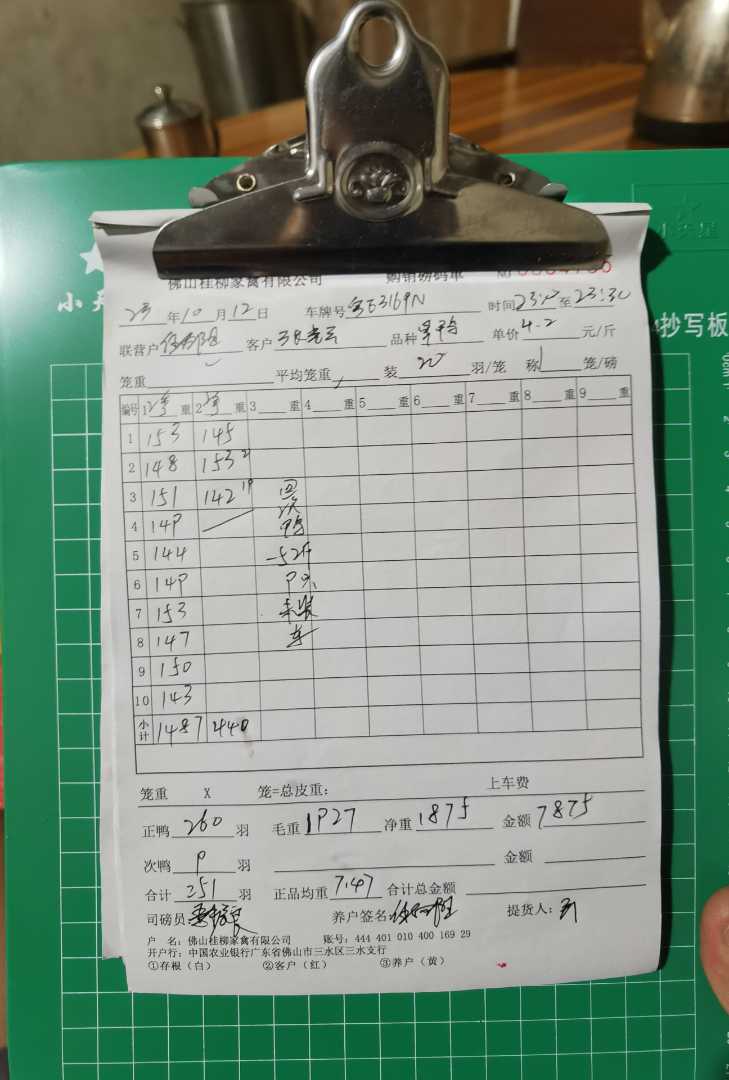 佛山桂柳家禽有限公司 购销磅码单
小天星
23年10月12日 车牌号 3169N 时间 至23:30
抄写板
联营户 客户 品种 单价4.2元/斤
笼重 平均笼重 装20羽/笼 称1笼/磅
编号 1 重 2 重 3 重 4 重 5 重 6 重 7 重 8 重 9 重
1 153 145
2 148 153 2
3 151 142 19 回
次
4 149 鸭
5 144 -52斤
6 149 9只
7 153 未装
8 147 车
9 150
10 143
小计 1487 440
笼重 X 笼=总皮重: 上车费
正鸭260羽 毛重1927 净重1875 金额7875
次鸭9羽 金额
合计251羽 正品均重7.47 合计总金额
司磅员 养户签名 提货人:
户 名: 佛山桂柳家禽有限公司 账号: 444 401 010 400 169 29
开户行: 中国农业银行广东省佛山市三水区三水支行
①存根(白) ②客户(红) ③养户(黄)